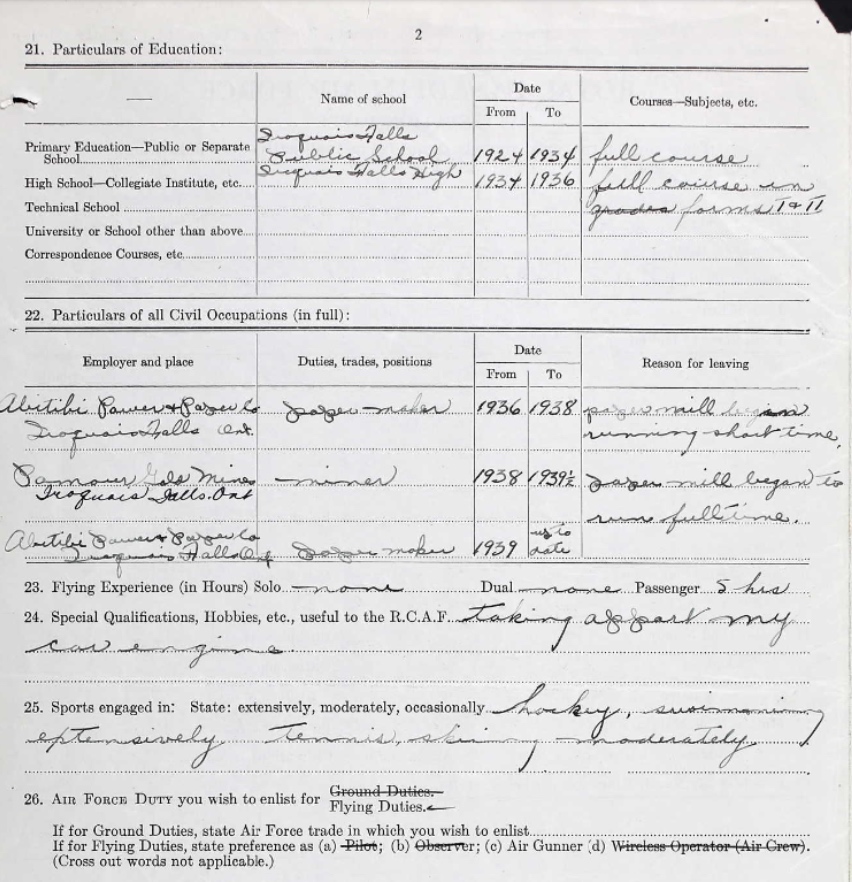 2
21. Particulars of Education:
Name of school
Date
From To
Courses—Subjects, etc.
Iroquois Falls
Primary Education—Public or Separate
School Public School 1924 1934 full course
High School—Collegiate Institute, etc. Iroquois Falls High 1934 1936 full course in
Technical School grades forms I & II
University or School other than above
Correspondence Courses, etc.
22. Particulars of all Civil Occupations (in full):
Employer and place
Duties, trades, positions
Date
From To
Reason for leaving
Abitibi Power & Paper Co paper maker 1936 1938 paper mill began
Iroquois Falls Ont. running short time.
Pamour Gold Mines miner 1938 1939½ paper mill began to
Iroquois Falls. Ont
run full time.
Abitibi Power & Paper Co up to
Iroquois Falls Ont paper maker 1939 date
23. Flying Experience (in Hours) Solo none Dual none Passenger 5 hrs
24. Special Qualifications, Hobbies, etc., useful to the R.C.A.F. taking appart my
car engine
25. Sports engaged in: State: extensively, moderately, occasionally hockey, swimming
extensively tennis, skiing moderately
26. AIR FORCE DUTY you wish to enlist for Ground Duties.
Flying Duties.
If for Ground Duties, state Air Force trade in which you wish to enlist
If for Flying Duties, state preference as (a) Pilot; (b) Observer; (c) Air Gunner (d) Wireless Operator (Air Crew).
(Cross out words not applicable.)